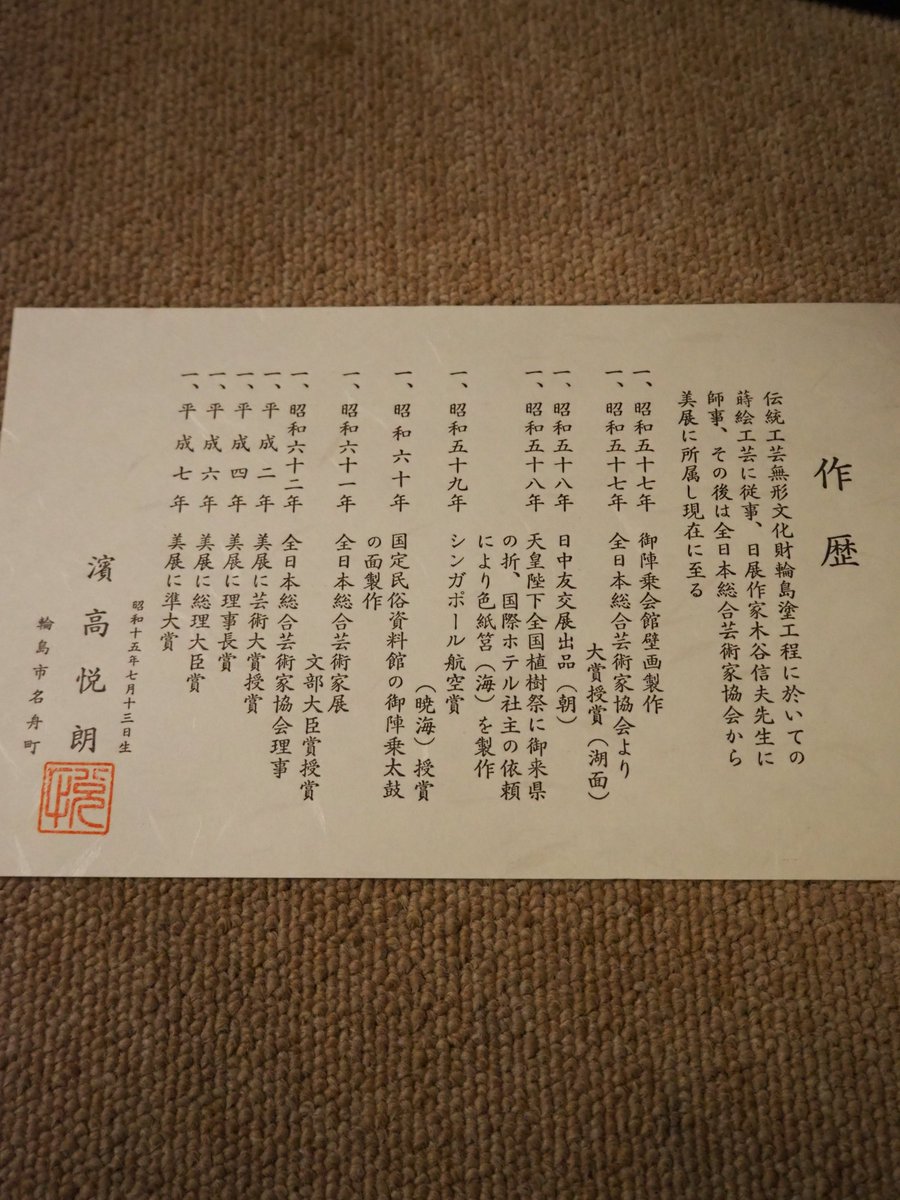 作歴
伝統工芸無形文化財輪島塗工程に於いての
蒔絵工芸に従事、日展作家木谷信夫先生に
師事、その後は全日本総合芸術家協会から
美展に所属し現在に至る
一、昭和五十七年 御陣乗会館壁画製作
一、昭和五十七年 全日本総合芸術家協会より
大賞授賞(湖面)
一、昭和五十八年 日中友交展出品(朝)
一、昭和五十八年 天皇陛下全国植樹祭に御来県
の折、国際ホテル社主の依頼
により色紙筥(海)を製作
一、昭和五十九年 シンガポール航空賞
(暁海)授賞
一、昭和六十年 国定民俗資料館の御陣乗太鼓
の面製作
一、昭和六十一年 全日本総合芸術家展
文部大臣賞授賞
一、昭和六十二年 全日本総合芸術家協会理事
一、平成二年 美展に芸術大賞授賞
一、平成四年 美展に理事長賞
一、平成六年 美展に総理大臣賞
一、平成七年 美展に準大賞
昭和十五年七月十三日生
濱高悦朗
輪島市名舟町